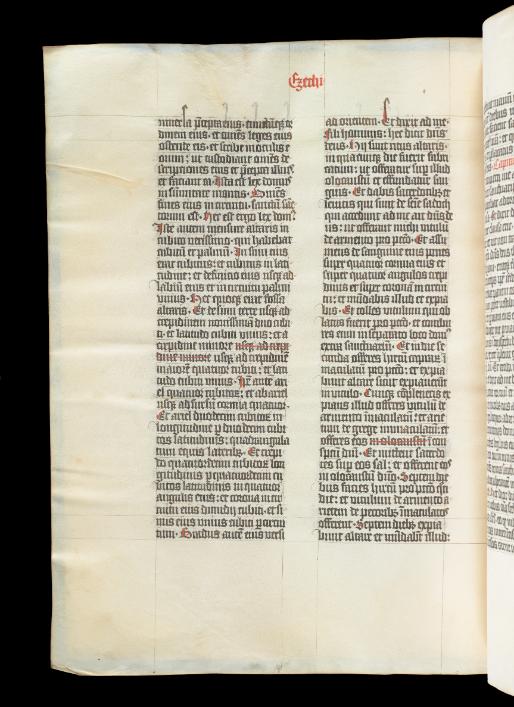 Ezechi
omnia precepta eius. cunctasq; or
dinem eius. et omnes leges eius
ostende eis. et scribes in oculis e
orum: ut custodiant omnes de
scriptiones eius et precepta illius
et faciant ea. Ista est lex domus
in summitate montis. Omnes
fines eius in circuitu. sanctum sanc
torum est. Hec est ergo lex domus
Iste autem mensure altaris in
cubito verissimo. qui habebat
cubitum et palmum. In sinu eius
erat cubitus: et cubitus in lati
tudine: et definitio eius usq; ad
labium eius et in circuitu palmus
unus. Hec quoq; erat fossa
altaris. Et de sinu terre usq; ad
crepidinem novissimam duo cubi
ti. et latitudo cubiti unius: et a
crepidine minore usq; ad crepi
dine minore usq; ad crepidinem
maiorem quatuor cubiti: et lati
tudo cubiti unius. Ipse autem ari
el quatuor cubitos: et ab ariel
usq; ad sursum cornua quatuor.
Et ariel duodecim cubitorum in
longitudine per duodecim cubi
tos latitudinis: quadrangula
tum equis lateribus. Et crepi
do quatuordecim cubitorum lon
gitudinis per quatuordecim cu
bitos latitudinis in quatuor
angulis eius: et corona in cir
cuitu eius dimidii cubiti. et si
nus eius unius cubiti per circui
tum. Gradus autem eius versi
ad orientem. Et dixit ad me.
Fili hominis: hec dicit dominus
deus. Hii sunt ritus altaris.
in quacumq; die fuerit fabri
catum: ut offeratur super illud
olocaustum et effundatur san
guis. Et dabis sacerdotibus et
leuitis qui sunt de semine sadoch
qui accedunt ad me ait dominus de
us: ut offerant michi vitulum
de armento pro peccato. Et assu
mens de sanguine eius pones
super quatuor cornua eius et
super quatuor angulos crepi
dinis et super coronam in circui
tu: et mundabis illud et expia
bis. Et tolles vitulum qui ob
latus fuerit pro peccato. et combu
res eum in separato loco domus
extra sanctuarium. Et in die se
cunda offeres hircum caprarum in
maculatum pro peccato: et expia
bunt altare sicut expiauerunt
in vitulo. Cumq; compleueris ex
pians illud offeres vitulum de
armento immaculatum: et arie
tem de grege immaculatum: et
offeres eos in olocaustum in con
spectu domini. Et mittent sacerdo
tes super eos sal: et offerent eos
in olocaustum domino. Septem die
bus facies hircum pro peccato coti
die: et vitulum de armento et a
rietem de pecoribus immaculatos
offerent. Septem diebus expia
bunt altare et mundabunt illud: